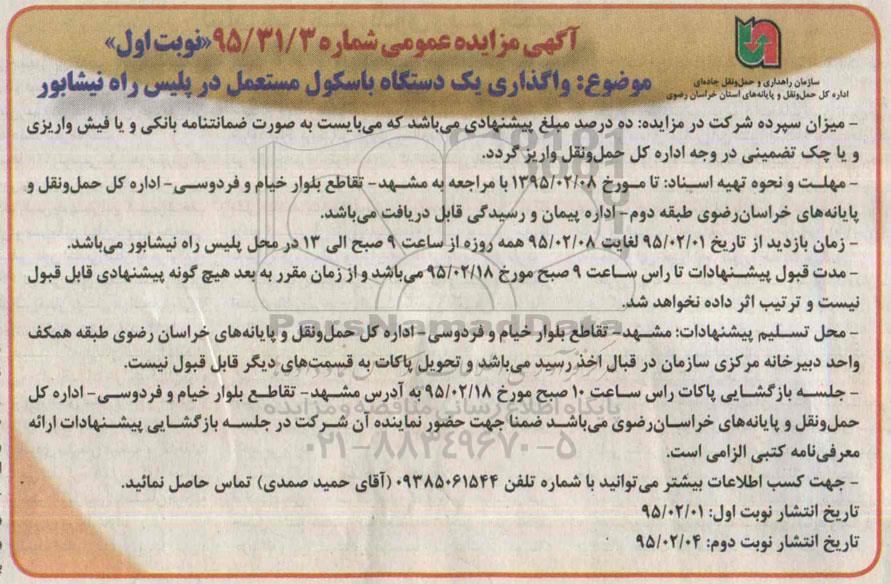 آگهی مزایده عمومی شماره ۹۵/۳۱/۳ «نوبت اول»
موضوع: واگذاری یک دستگاه باسکول مستعمل در پلیس راه نیشابور
سازمان راهداری و حمل‌ونقل جاده‌ای
اداره کل حمل‌ونقل و پایانه‌های استان خراسان رضوی
- میزان سپرده شرکت در مزایده: ده درصد مبلغ پیشنهادی می‌باشد که می‌بایست به صورت ضمانتنامه بانکی و یا فیش واریزی
و یا چک تضمینی در وجه اداره کل حمل‌ونقل واریز گردد.
- مهلت و نحوه تهیه اسناد: تا مورخ ۱۳۹۵/۰۲/۰۸ با مراجعه به مشهد- تقاطع بلوار خیام و فردوسی- اداره کل حمل‌ونقل و
پایانه‌های خراسان‌رضوی طبقه دوم- اداره پیمان و رسیدگی قابل دریافت می‌باشد.
- زمان بازدید از تاریخ ۹۵/۰۲/۰۱ لغایت ۹۵/۰۲/۰۸ همه روزه از ساعت ۹ صبح الی ۱۳ در محل پلیس راه نیشابور می‌باشد.
- مدت قبول پیشنهادات تا راس ساعت ۹ صبح مورخ ۹۵/۰۲/۱۸ می‌باشد و از زمان مقرر به بعد هیچ گونه پیشنهادی قابل قبول
نیست و ترتیب اثر داده نخواهد شد.
- محل تسلیم پیشنهادات: مشهد- تقاطع بلوار خیام و فردوسی- اداره کل حمل‌ونقل و پایانه‌های خراسان رضوی طبقه همکف
واحد دبیرخانه مرکزی سازمان در قبال اخذ رسید می‌باشد و تحویل پاکات به قسمت‌های دیگر قابل قبول نیست.
- جلسه بازگشایی پاکات راس ساعت ۱۰ صبح مورخ ۹۵/۰۲/۱۸ به آدرس مشهد- تقاطع بلوار خیام و فردوسی- اداره کل
حمل‌ونقل و پایانه‌های خراسان‌رضوی می‌باشد ضمنا جهت حضور نماینده آن شرکت در جلسه بازگشایی پیشنهادات ارائه
معرفی‌نامه کتبی الزامی است.
- جهت کسب اطلاعات بیشتر می‌توانید با شماره تلفن ۰۹۳۸۵۰۶۱۵۴۴ (آقای حمید صمدی) تماس حاصل نمائید.
تاریخ انتشار نوبت اول: ۹۵/۰۲/۰۱
تاریخ انتشار نوبت دوم: ۹۵/۰۲/۰۴
ParsNamadData
پایگاه اطلاع رسانی مناقصه و مزایده
۰۲۱-۸۸۳۴۹۶۷۰-۵